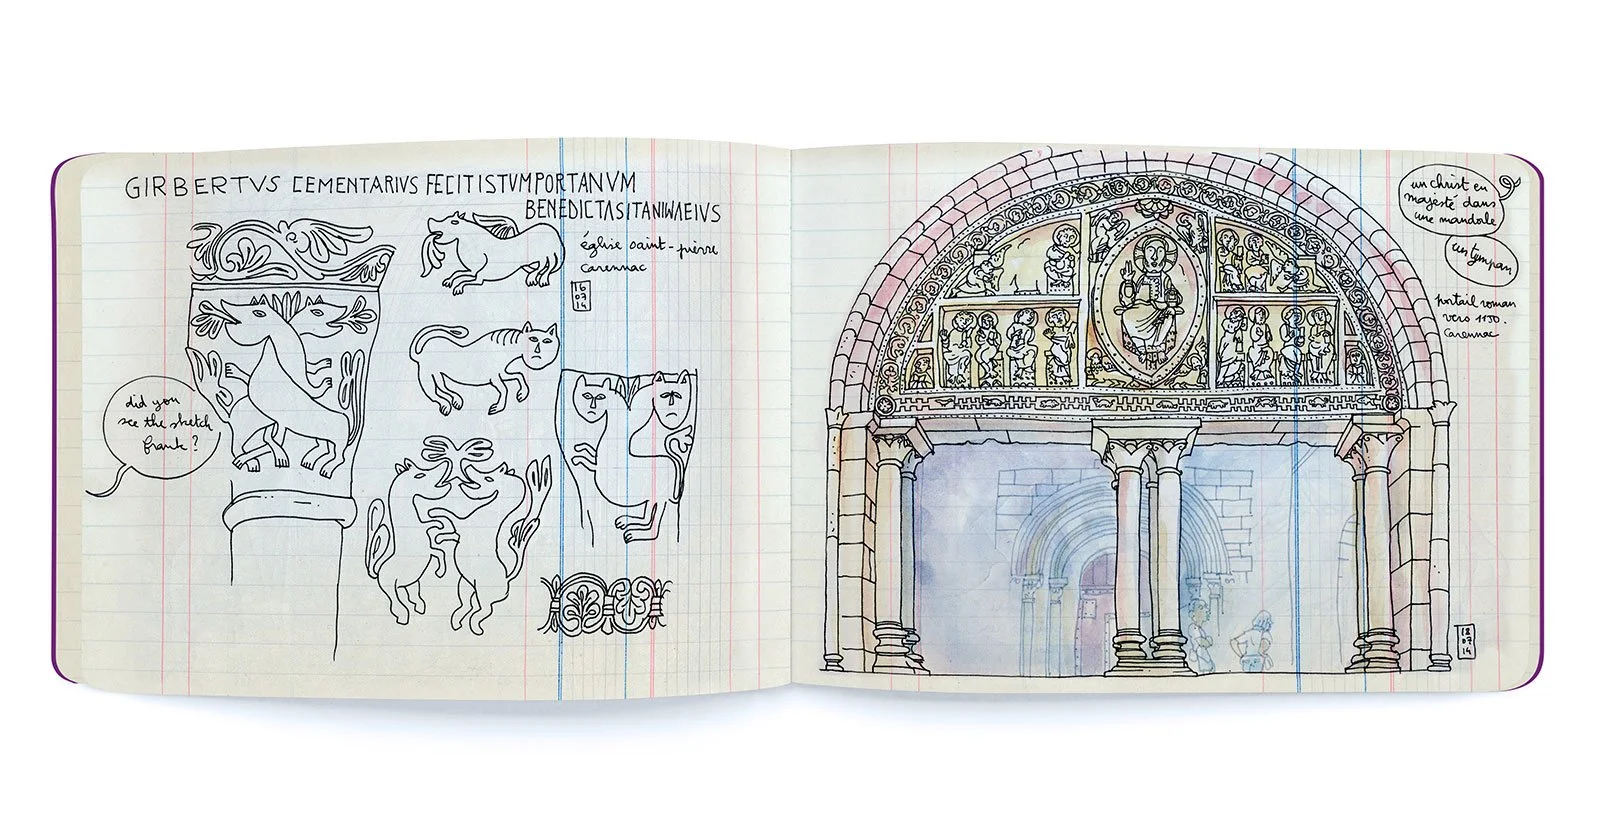 GIRBERTVS CEMENTARIVS FECIT ISTVM PORTANVM
BENEDICTA SIT ANIMA EIVS
église saint-pierre
carennac
16
07
14
did you
see the sketch
frank ?
un christ en
majesté dans
une mandorle
un tympan
portail roman
vers 1150.
Carennac
18
07
14